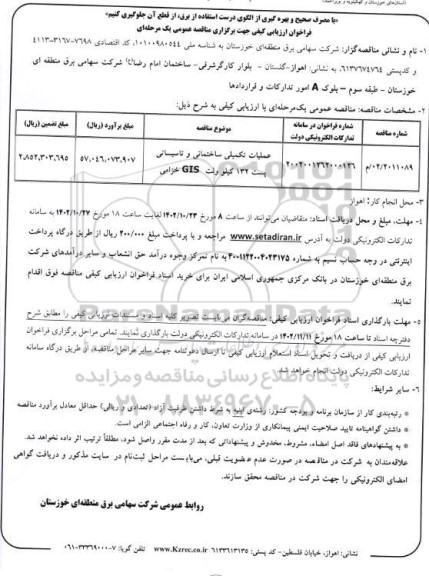 (استان‌های خوزستان و کهگیلویه و بویراحمد)
«با مصرف صحیح و بهره گیری از الگوی درست استفاده از برق، از قطع آن جلوگیری کنیم»
فراخوان ارزیابی کیفی جهت برگزاری مناقصه عمومی یک مرحله‌ای
۱- نام و نشانی مناقصه‌گزار: شرکت سهامی برق منطقه‌ای خوزستان به شناسه ملی ۱۰۱۰۰۹۸۰۵۴۴، کد اقتصادی ۷۶۹۸-۳۱۶۷-۴۱۱۳
و کدپستی ۶۱۳۷۶۷۴۷۶۴، به نشانی: اهواز-گلستان - بلوار کارگرشرقی- ساختمان امام رضا - شرکت سهامی برق منطقه ای
خوزستان - طبقه سوم – بلوک A امور تدارکات و قراردادها
۲- مشخصات مناقصه: مناقصه عمومی یک‌مرحله‌ای با ارزیابی کیفی به شرح ذیل:
شماره مناقصه شماره فراخوان در سامانه تدارکات الکترونیکی دولت موضوع مناقصه مبلغ برآورد (ریال) مبلغ تضمین (ریال)
۰۲/۲۰۱۱۰۸۹/م ۲۰۰۲۰۰۱۳۶۲۰۰۰۱۳۶ عملیات تکمیلی ساختمانی و تاسیساتی ۵۷,۰۴۶,۰۷۳,۹۰۷ ۲,۸۵۲,۳۰۳,۶۹۵
پست ۱۳۲ کیلو ولت GIS خزامی
۳- محل انجام کار: اهواز
۴- مهلت، مبلغ و محل دریافت اسناد: متقاضیان می‌توانند از ساعت ۸ مورخ ۱۴۰۲/۱۰/۲۳ لغایت ساعت ۱۸ مورخ ۱۴۰۲/۱۰/۲۷ به سامانه
تدارکات الکترونیکی دولت به آدرس www.setadiran.ir مراجعه و با پرداخت مبلغ ۲۰۰/۰۰۰ ریال از طریق درگاه پرداخت
اینترنتی در وجه حساب نسیم به شماره ۴۰۰۱۱۲۲۰۰۴۰۲۳۱۷۵ به نام تمرکز وجوه درآمد حق انشعاب و سایر درآمدهای شرکت
برق منطقه‌ای خوزستان در بانک مرکزی جمهوری اسلامی ایران برای خرید اسناد فراخوان ارزیابی کیفی مناقصه فوق اقدام
نمایند.
۵- مهلت بارگذاری اسناد فراخوان ارزیابی کیفی: مناقصه‌گران می‌بایست تصویر کلیه اسناد و مستندات ارزیابی کیفی را مطابق شرح
دفترچه اسناد تا ساعت ۱۸ مورخ ۱۴۰۲/۱۱/۱۱ در سامانه تدارکات الکترونیکی دولت بارگذاری نمایند. تمامی مراحل برگزاری فراخوان
ارزیابی کیفی از دریافت و تحویل اسناد استعلام ارزیابی کیفی تا ارسال دعوتنامه جهت سایر مراحل مناقصه، از طریق درگاه سامانه
تدارکات الکترونیکی دولت انجام خواهد شد.
۶- سایر شرایط:
* رتبه‌بندی کار از سازمان برنامه و بودجه کشور: رشته‌ی ابنیه به شرط داشتن ظرفیت آزاد (تعدادی و ریالی) حداقل معادل برآورد مناقصه
* داشتن گواهینامه تایید صلاحیت ایمنی پیمانکاری از وزارت تعاون، کار و رفاه اجتماعی الزامی است.
* به پیشنهادهای فاقد امضاء، مشروط، مخدوش و پیشنهاداتی که بعد از مدت مقرر واصل شود، مطلقاً ترتیب اثر داده نخواهد شد.
علاقه‌مندان به شرکت در مناقصه در صورت عدم عضویت قبلی، می‌بایست مراحل ثبت‌نام در سایت مذکور و دریافت گواهی
امضای الکترونیکی را جهت شرکت در مناقصه محقق سازند.
روابط عمومی شرکت سهامی برق منطقه‌ای خوزستان
نشانی: اهواز، خیابان فلسطین- کد پستی: ۶۱۳۳۶۱۳۱۳۵ www.Kzrec.co.ir تلفن گویا: ۷-۳۳۳۶۹۰۰۰-۰۶۱
پایگاه اطلاع رسانی مناقصه و مزایده
۰۲۱-۸۸۳۴۹۶۷۰-۵